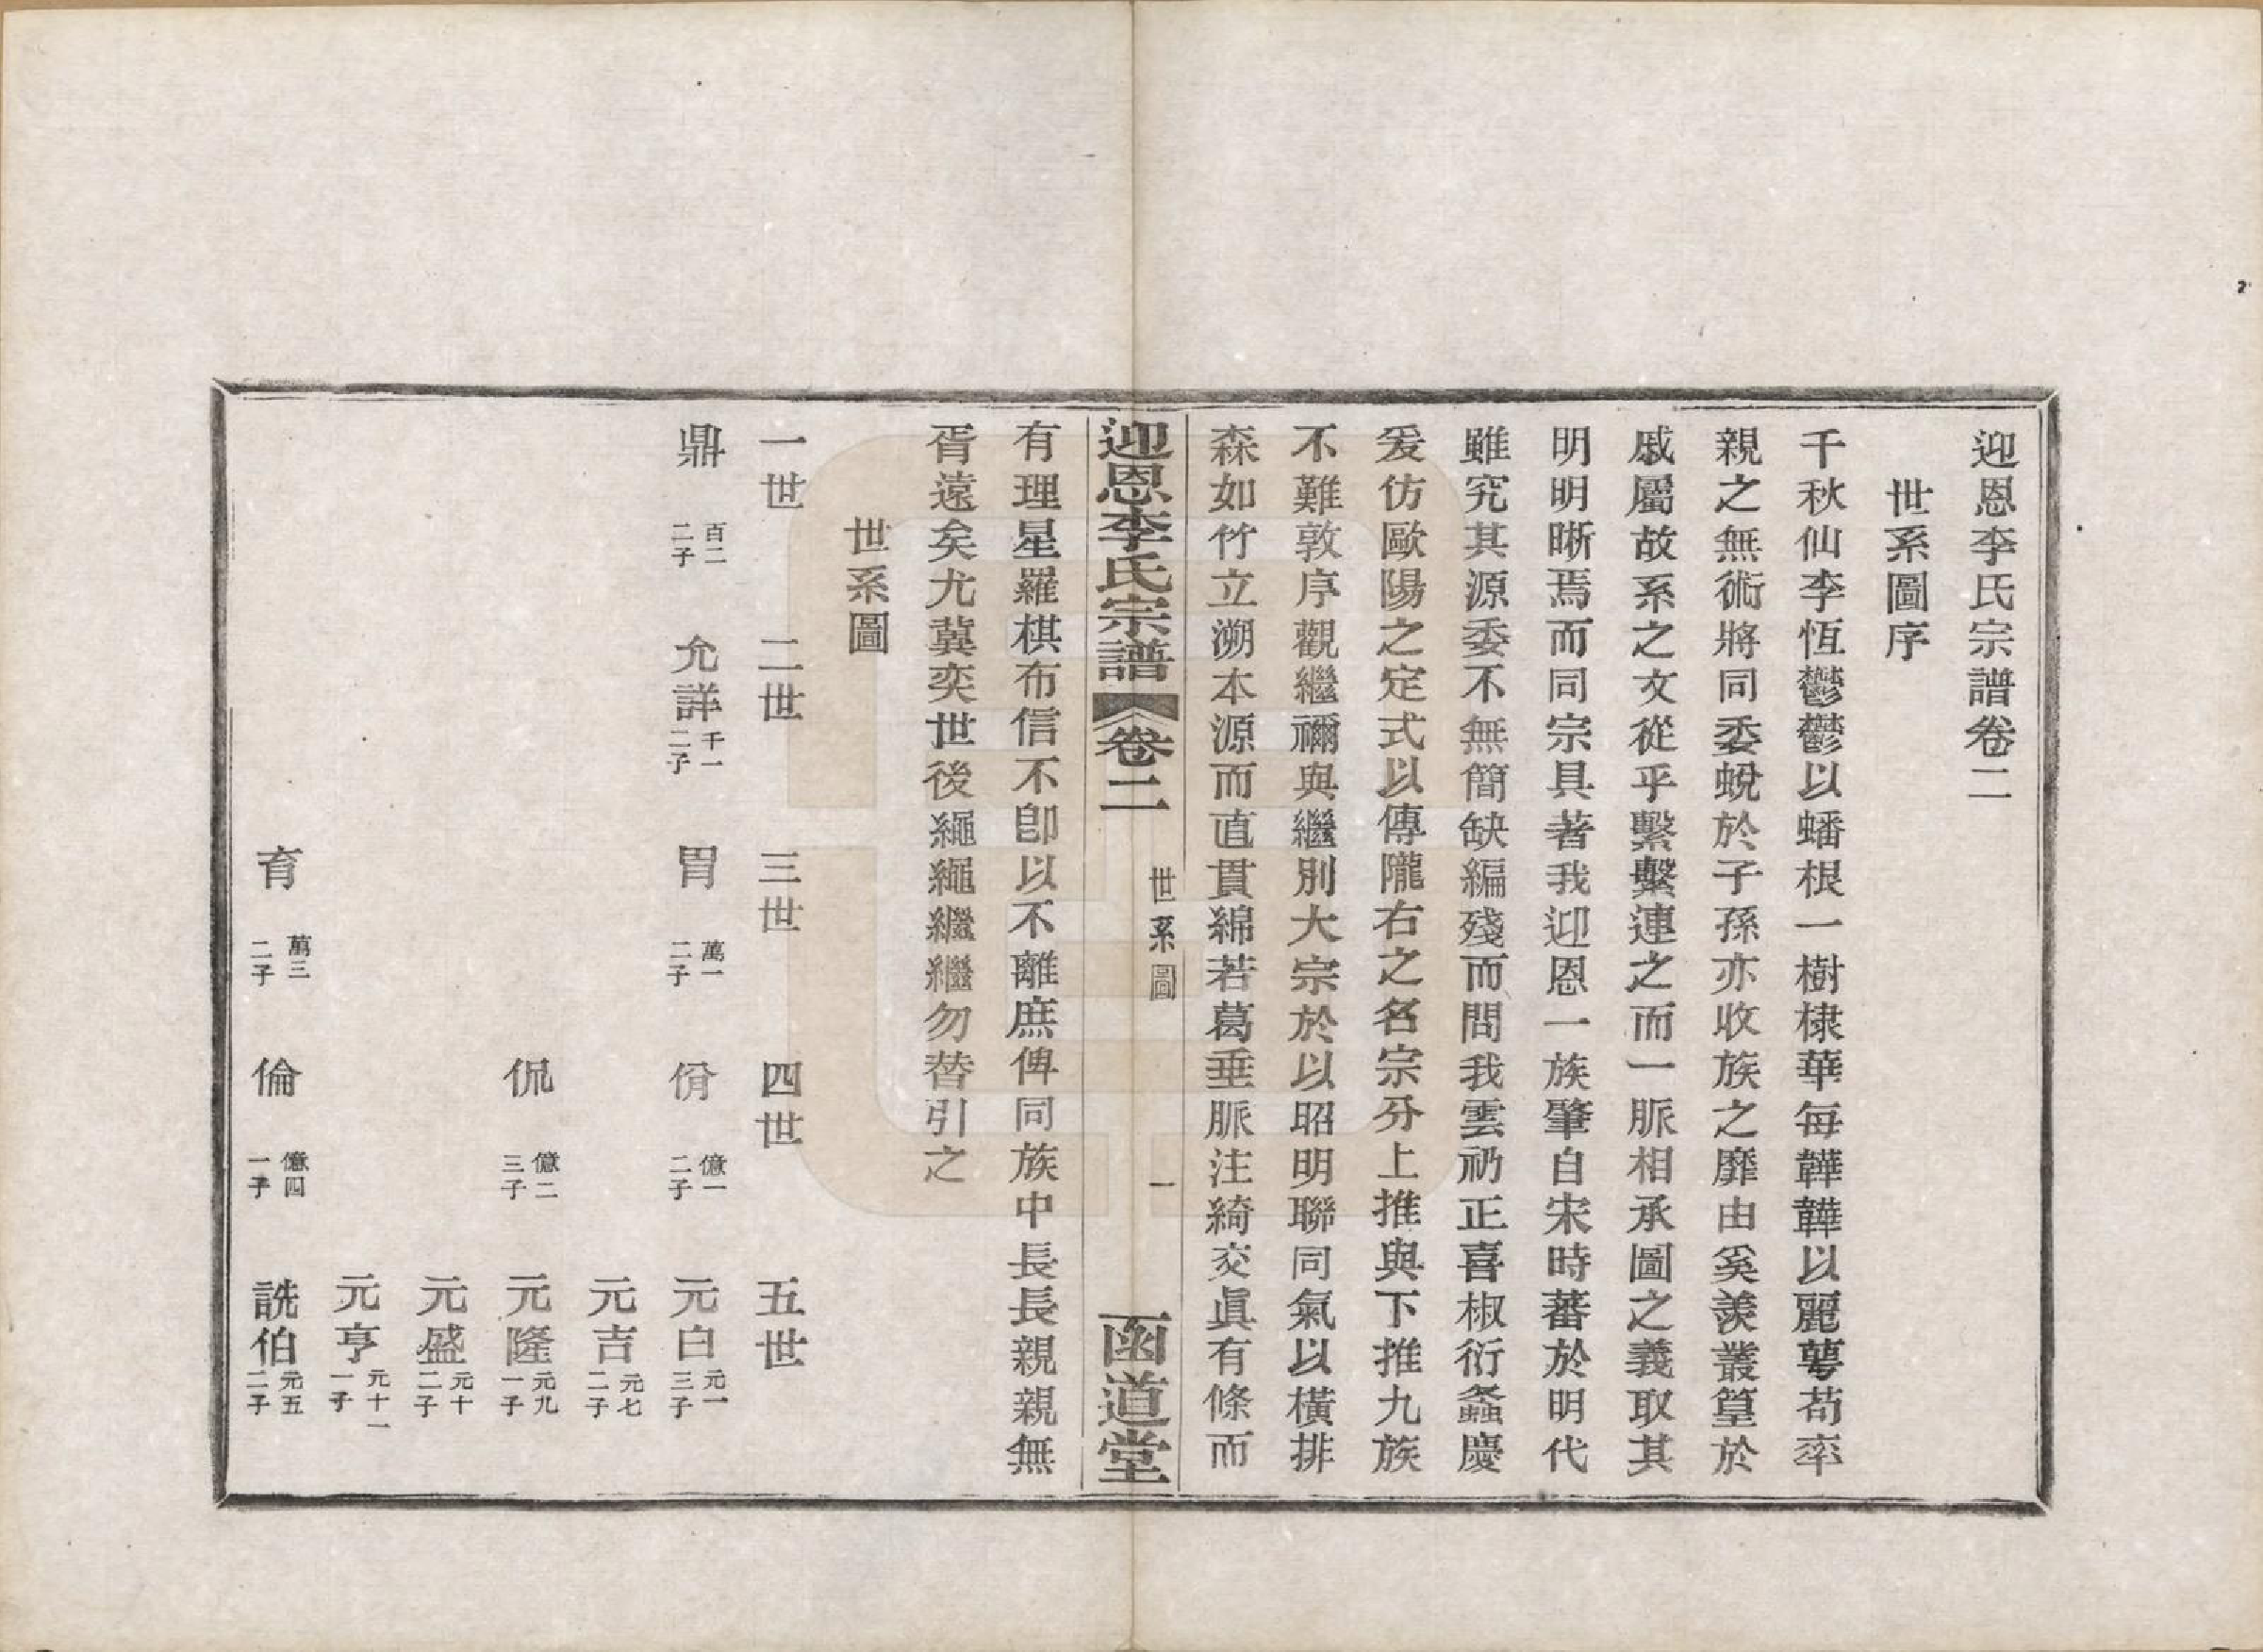 迎恩李氏宗譜卷二
世系圖序
千秋仙李恆鬱鬱以蟠根一樹棣華每韡韡以麗萼苟率
親之無術將同委蛻於子孫亦收族之靡由奚羨叢篁於
戚屬故系之文從乎繫繫連之而一脈相承圖之義取其
明明晰焉而同宗具著我迎恩一族肇自宋時蕃於明代
雖究其源委不無簡缺編殘而問我雲礽正喜椒衍螽慶
爰仿歐陽之定式以傳隴右之名宗分上推與下推九族
不難敦序觀繼禰與繼別大宗於以昭明聯同氣以橫排
森如竹立溯本源而直貫綿若葛垂脈注綺交眞有條而
迎恩李氏宗譜 卷二 世系圖 一 函道堂
有理星羅棋布信不卽以不離庶俾同族中長長親親無
胥遠矣尤冀奕世後繩繩繼繼勿替引之
世系圖
一世 二世 三世 四世 五世
鼎 百二 二子 允詳 千一 二子 胃 萬一 二子 佾 億一 二子 元白 元一 三子
元吉 元七 二子
侃 億二 三子 元隆 元九 一子
元盛 元十 二子
元亨 元十一 一子
育 萬三 二子 倫 億四 一子 詵伯 元五 二子
2